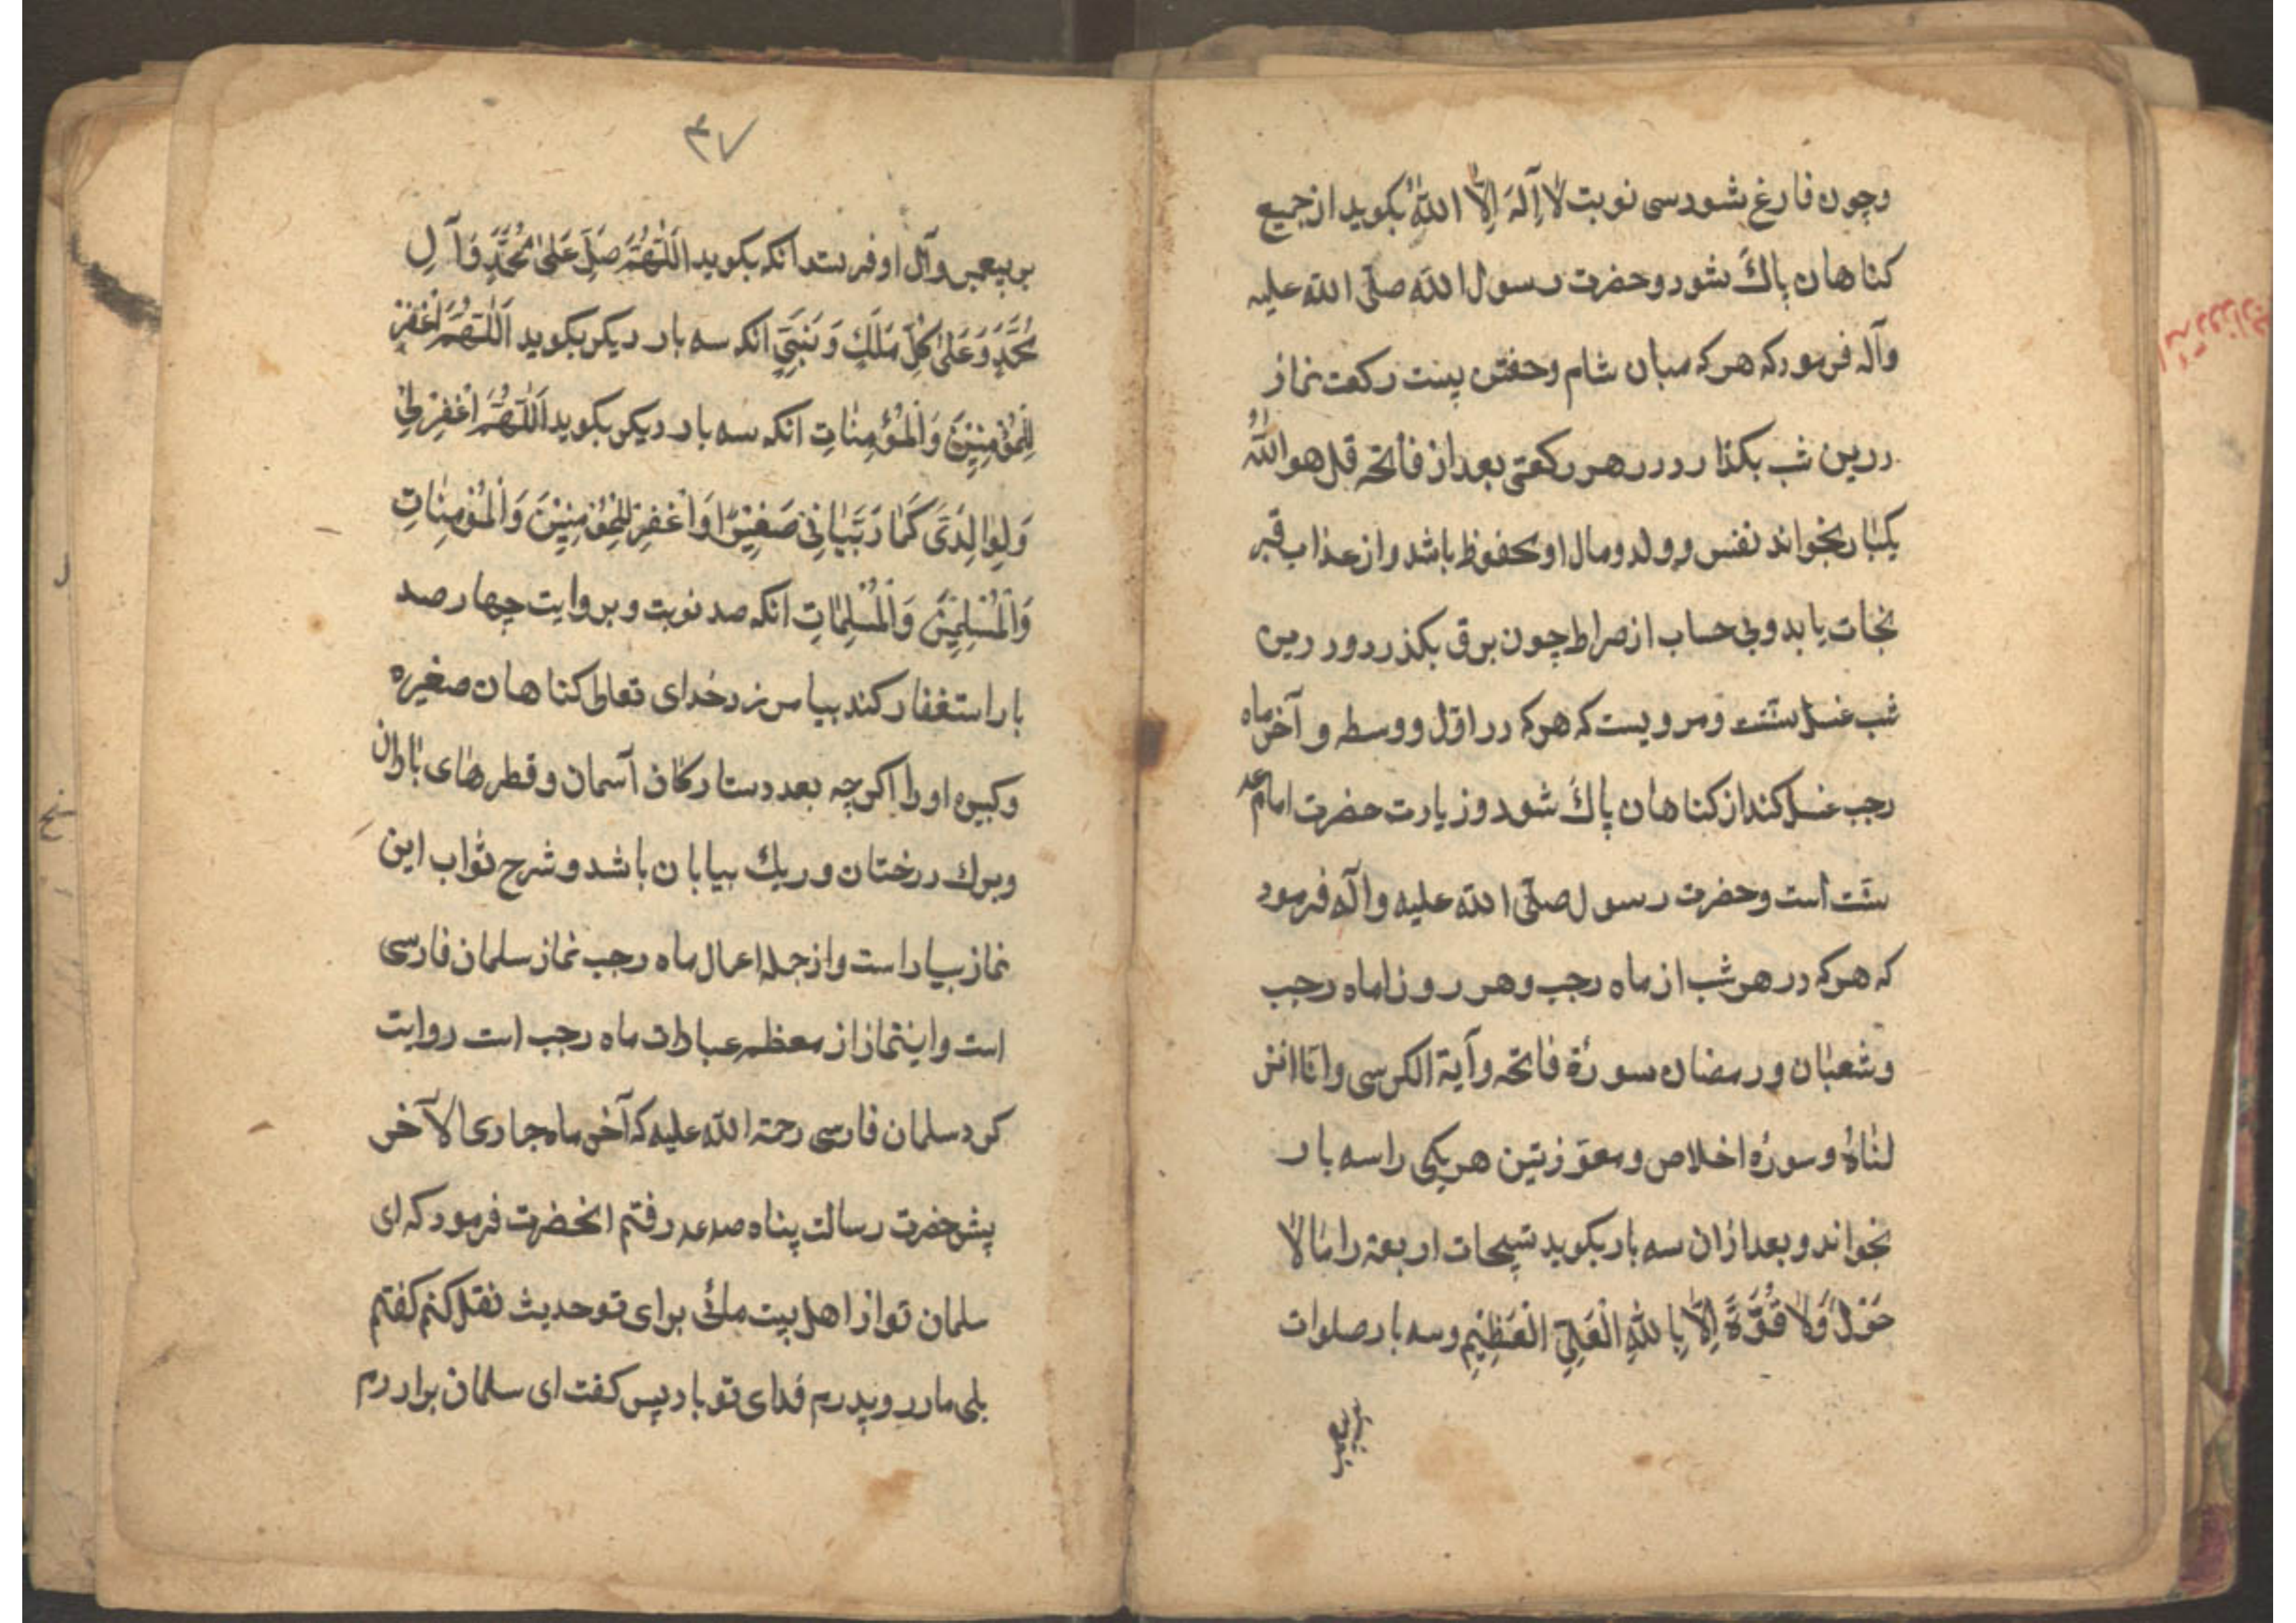 وچون فارغ شود سی نوبت لَا اِلَهَ اِلَّا اللهُ بکوید از جمیع
کناهان پاک شود وحضرت رسول الله صلّی الله علیه
وآله فرمود که هرکه میان شام وخفتن بیست رکعت نماز
درین شب بکذارد ودر هر رکعتی بعد از فاتحه قل هو اللهُ
یکبار بخواند نفس و ولد ومال او محفوظ باشد واز عذاب قبر
نجات یابد وبی حساب از صراط چون برق بکذرد ودرین
شب غسل سنّت ومرویست که هرکه در اوّل و وسط و آخر ماه
رجب غسل کند از کناهان پاک شود وزیارت حضرت امام
سنّت است وحضرت رسول صلّی الله علیه وآله فرمود
که هرکه در هر شب از ماه رجب وهر روز اماه رجب
وشعبان ورمضان سورة فاتحه وآیة الکرسی وانّا انز
لناهُ وسورهٔ اخلاص ومعوّذتین هریکی را سه بار
بخواند وبعد ازان سه بار بکوید تسبیحات اربعه را با لا
حَوْلَ وَلَا قُوَّةَ اِلَّا بِاللهِ الْعَلِیِّ الْعَظِیْمِ وسه بار صلوات
بر پیغمبر
۴۷
بر پیغمبر وآل او فرستد انکه بکوید اَللّٰهُمَّ صَلِّ عَلیٰ مُحَمَّدٍ وَآلِ
مُحَمَّدٍ وَعَلیٰ کُلِّ مَلَکٍ وَنَبِیٍّ انکه سه بار دیکر بکوید اَللّٰهُمَّ اغْفِرْ
لِلْمُؤْمِنِیْنَ وَالْمُؤْمِنَاتِ انکه سه بار دیکر بکوید اَللّٰهُمَّ اغْفِرْ لِیْ
وَلِوَالِدَیَّ کَمَا رَبَّیَانِیْ صَغِیْرًا وَاغْفِرْ لِلْمُؤْمِنِیْنَ وَالْمُؤْمِنَاتِ
وَالْمُسْلِمِیْنَ وَالْمُسْلِمَاتِ انکه صد نوبت وبروایت چهار صد
بار استغفار کند بیامرزد خدای تعالی کناهان صغیره
وکبیره اورا اکرچه بعدد ستارکان آسمان وقطرهای باران
وبرک درختان وریک بیابان باشد وشرح ثواب این
نماز بسیار است واز جمله اعمال ماه رجب نماز سلمان فارسی
است واینماز از معظم عبادات ماه رجب است روایت
کرد سلمان فارسی رحمة الله علیه که آخر ماه جمادی الآخر
پیش حضرت رسالت پناه صه عه رفتم انحضرت فرمود که ای
سلمان تو از اهل بیت مائی برای تو حدیث نقل کنم کفتم
بلی مادر وپدرم فدای تو باد پس کفت ای سلمان برادرم